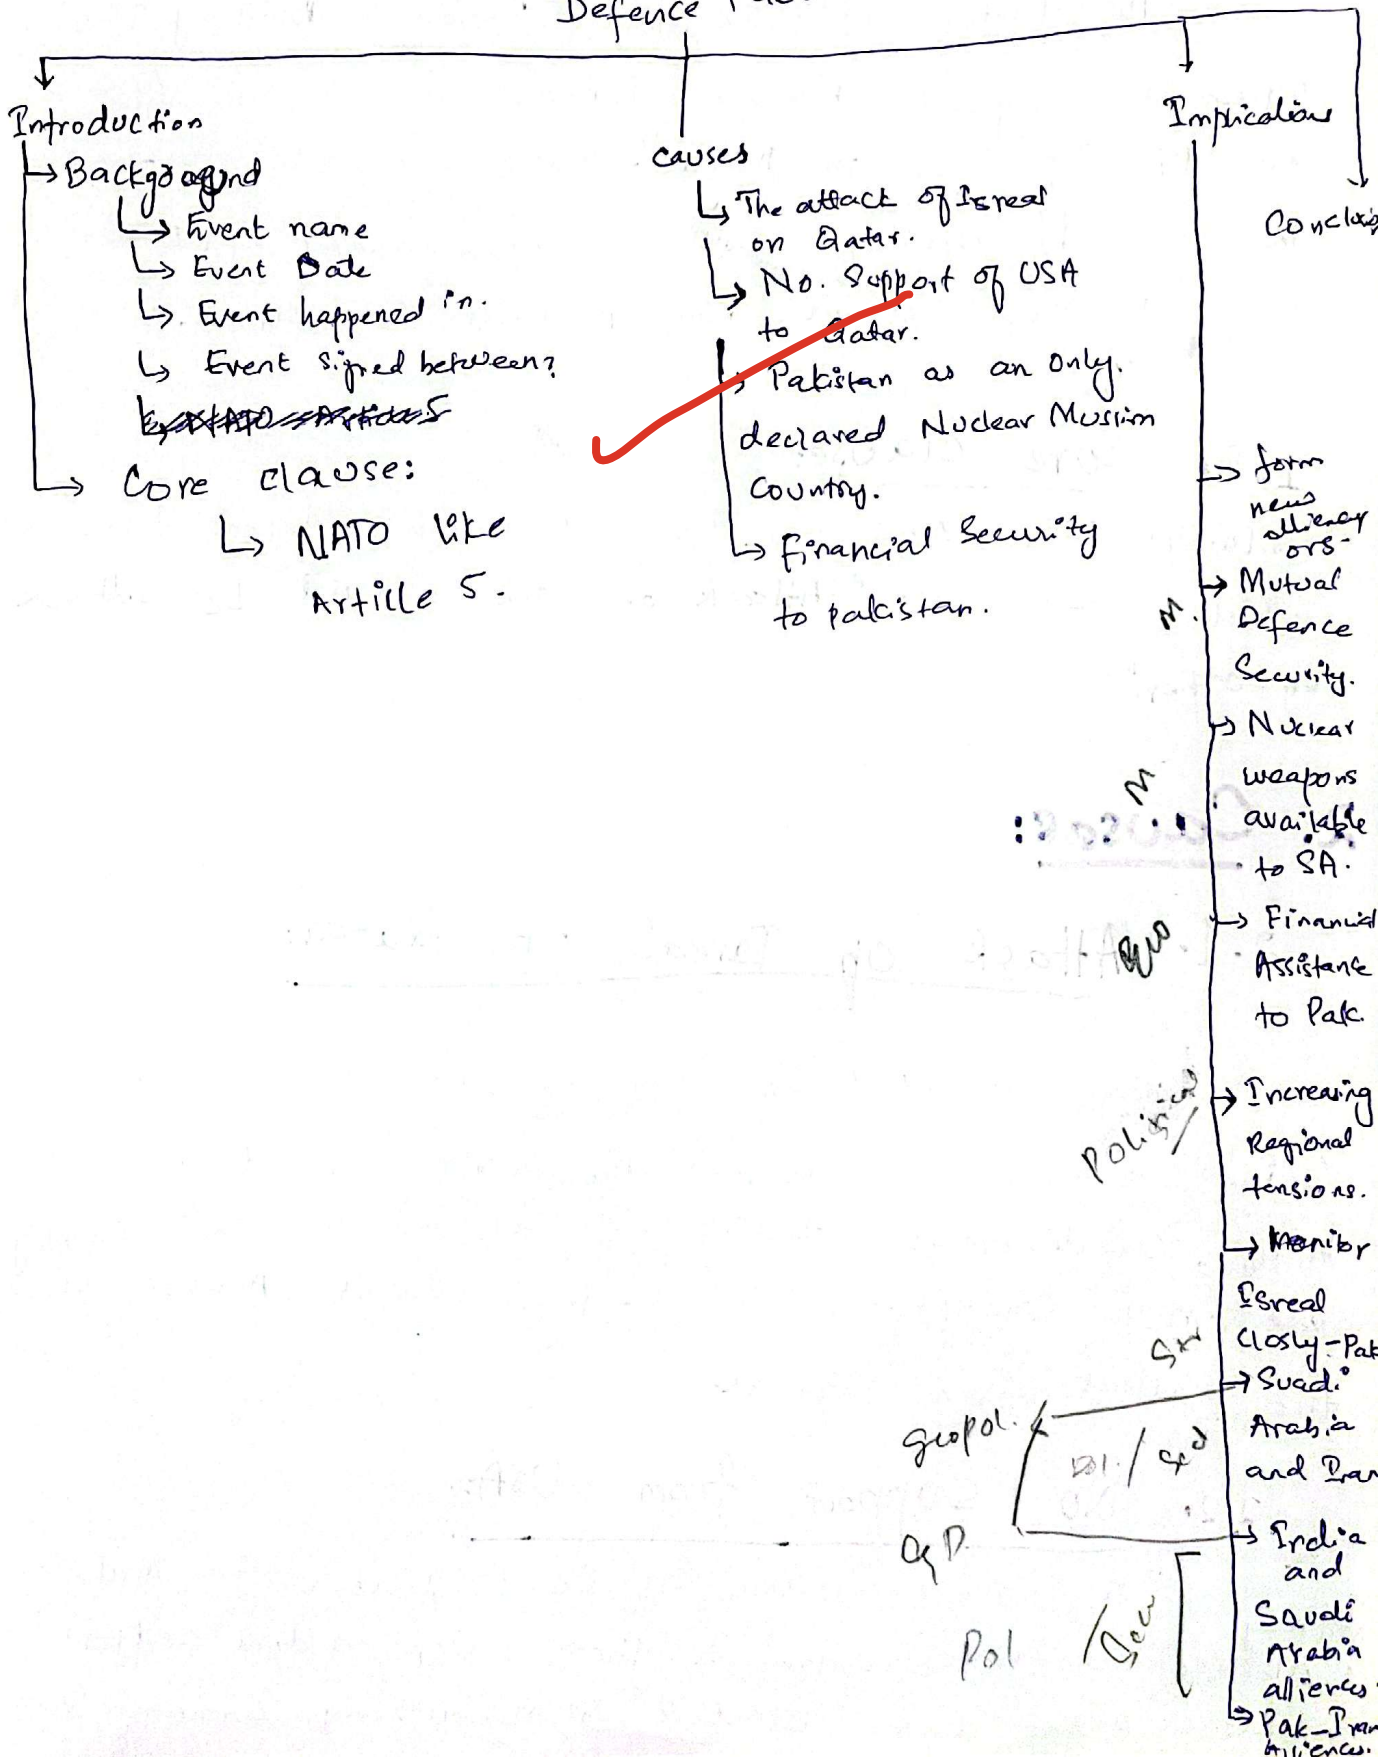 Defence
Introduction
Background
Event name
Event Date
Event happened in.
Event signed between?
NATO Article 5
Core clause:
NATO like
Article 5.
causes
The attack of Isreal
on Qatar.
No. Support of USA
to Qatar.
Pakistan as an only.
declared Nuclear Muslim
Country.
Financial Security
to pakistan.
Implications
form
new
ors-
Mutual
Defence
Security.
M.
Nuclear
weapons
available
to SA.
M
Financial
Assistance
to Pak.
Eco
Increasing
Regional
tensions.
Political
Monitor
Isreal
Closly-Pak
Suadi
Arabia
and Iran
geopol.
Pol. / Sec
India
and
Saudi
Arabia
alliences
Pol
Pak-Iran
Alliences.
Causes: